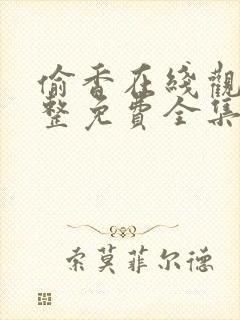 偷香在綫觀
整免費全集
索莫菲尔德